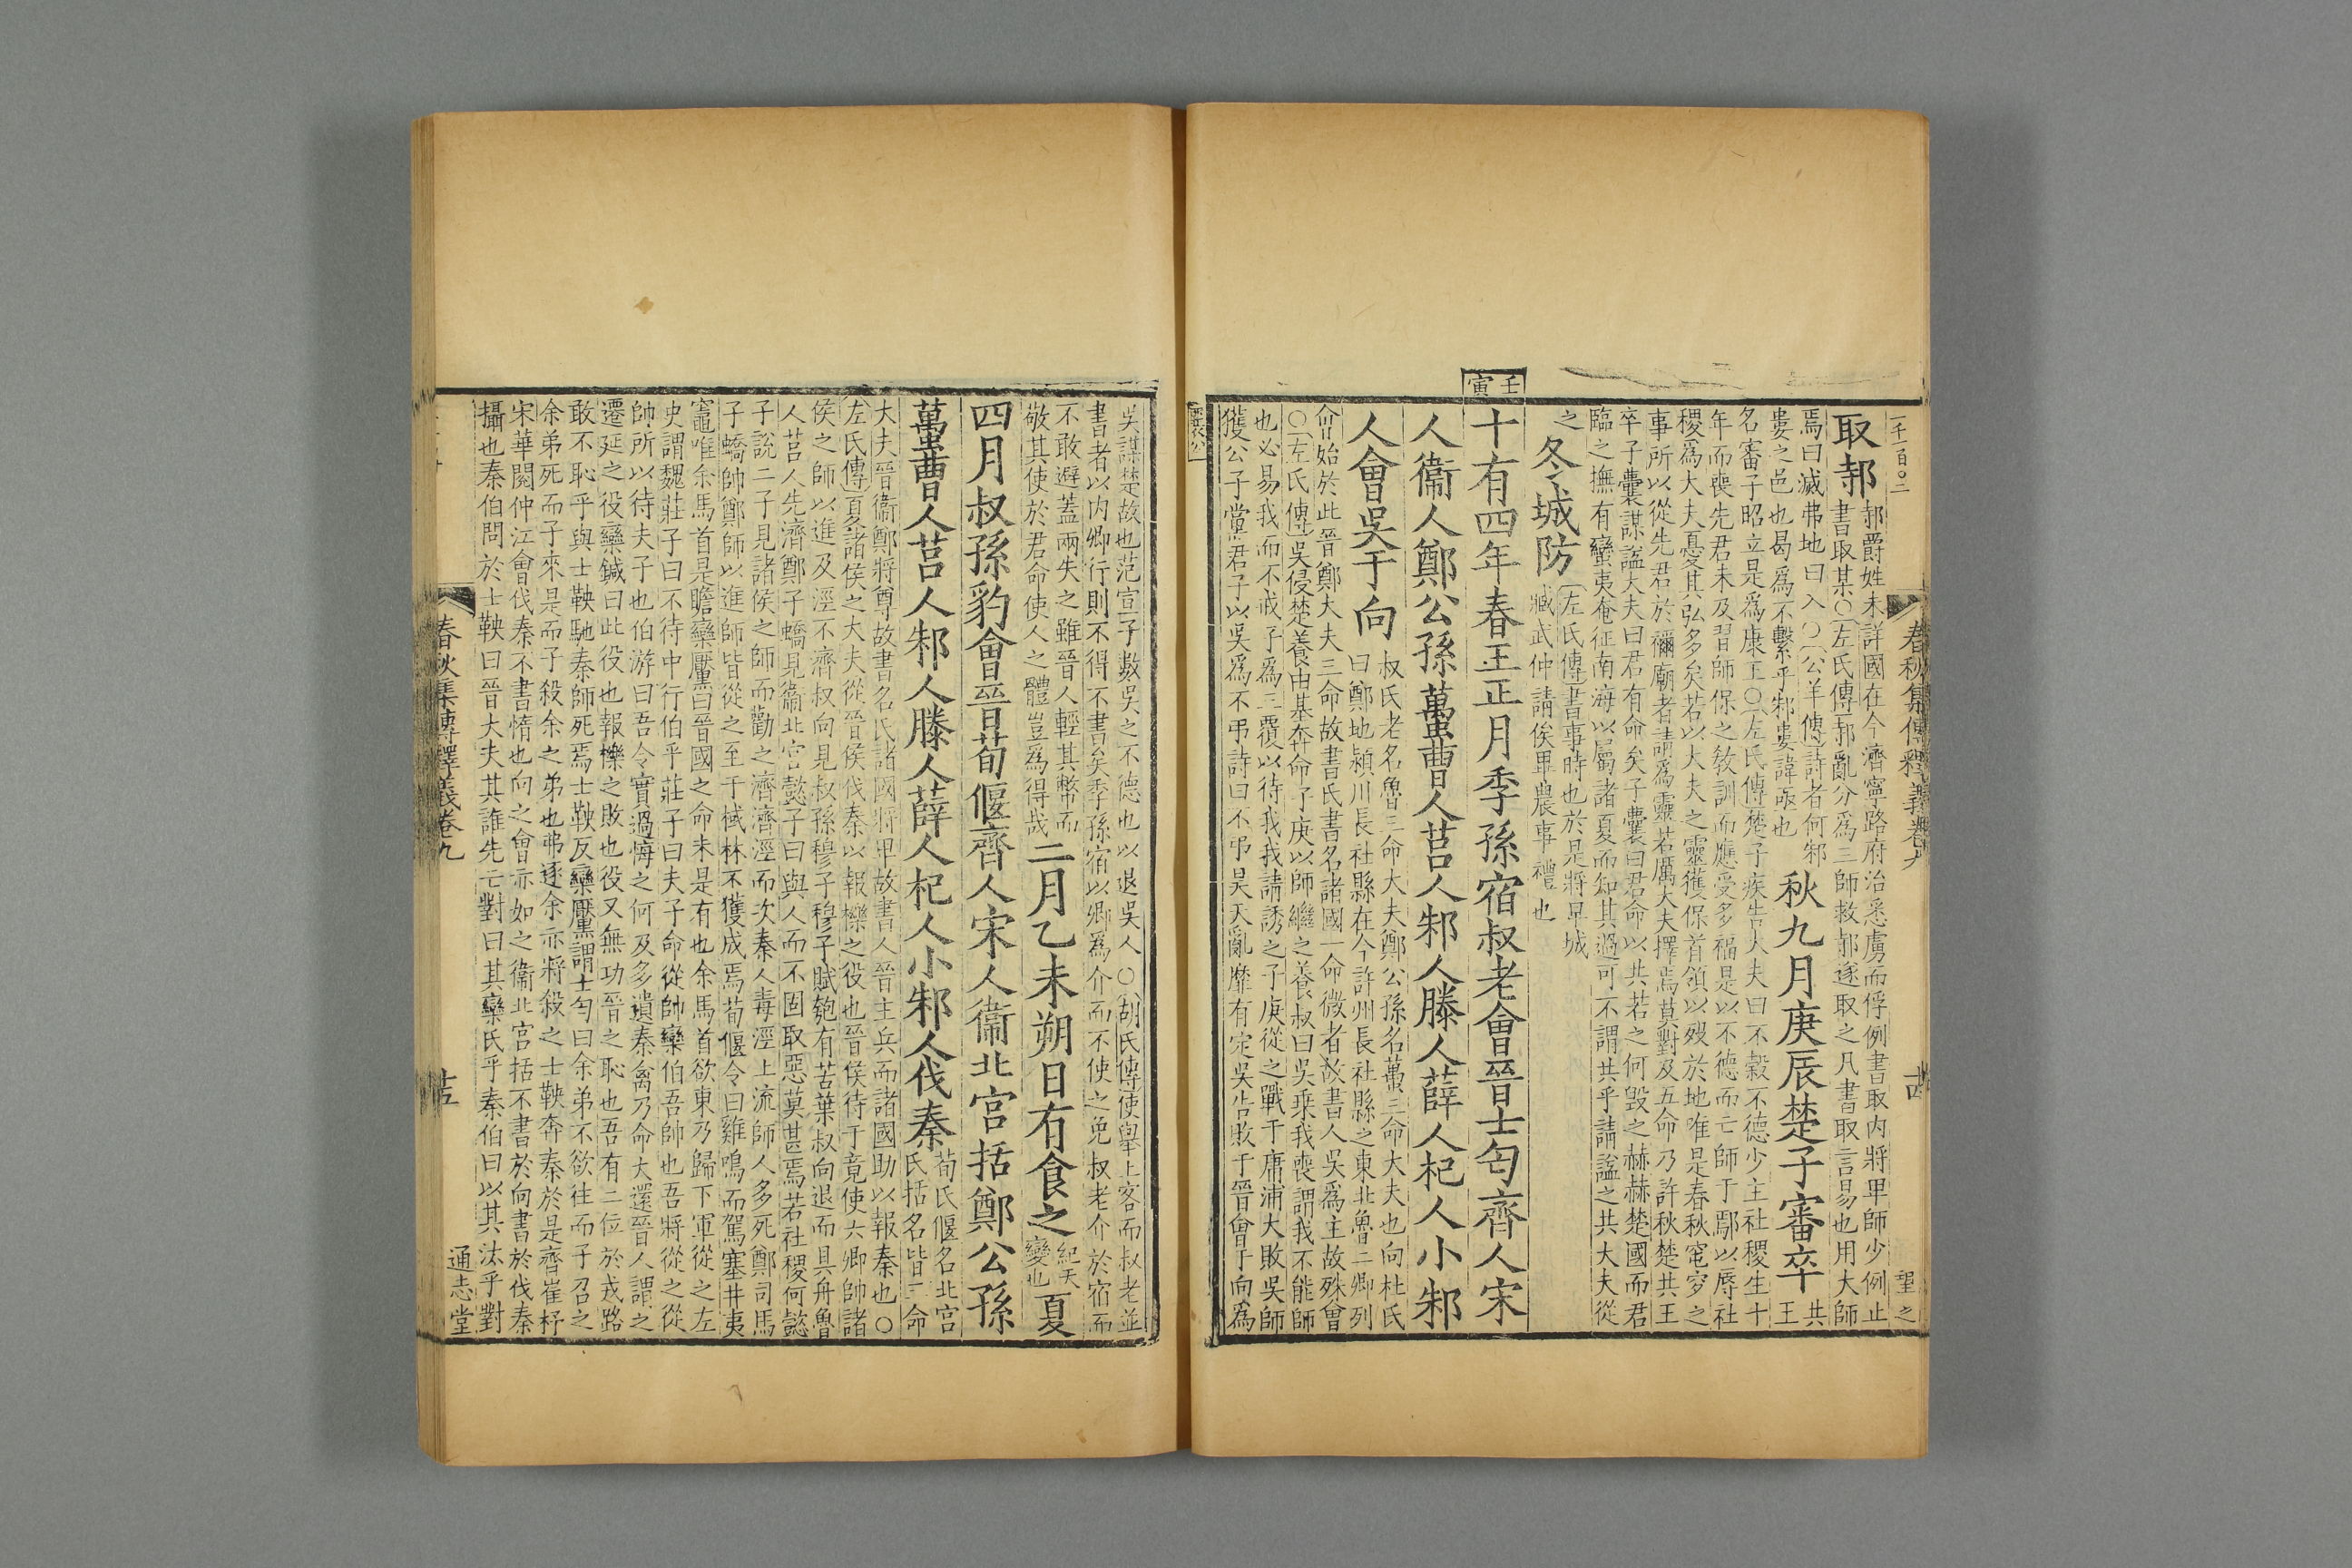 一千一百〇二
春秋集傳釋義卷九
古
望之
取邿
邿爵姓未詳國在今濟寧路府治悉虜而俘例書取内將卑師少例止
書取某〇左氏傳邿亂分為三師救邿遂取之凡書取言易也用大師
焉曰滅弗地曰入〇公羊傳詩者何邾
婁之邑也曷為不繫乎邾婁諱亟也
秋九月庚辰楚子審卒
共
王
名審子昭立是為康王〇左氏傳楚子疾告大夫曰不穀不德少主社稷生十
年而喪先君未及習師保之敎訓而應受多福是以不德而亡師于鄢以辱社
稷為大夫憂其弘多矣若以大夫之靈獲保首領以歿於地唯是春秋窀穸之
事所以從先君於禰廟者請為靈若厲大夫擇焉莫對及五命乃許秋楚共王
卒子囊謀謚大夫曰君有命矣子囊曰君命以共若之何毀之赫赫楚國而君
臨之撫有蠻夷奄征南海以屬諸夏而知其過可不謂共乎請謚之共大夫從
之
冬城防
左氏傳書事時也於是將早城
臧武仲請俟畢農事禮也
壬寅
十有四年春王正月季孫宿叔老會晉士匄齊人宋
人衞人鄭公孫蠆曹人莒人邾人滕人薛人杞人小邾
人會吳于向
叔氏老名魯三命大夫鄭公孫名蠆三命大夫也向杜氏
曰鄭地潁川長社縣在今許州長社縣之東北魯二卿列
會始於此晉鄭大夫三命故書氏書名諸國一命微者故書人吳為主故殊會
〇左氏傳吳侵楚養由基奔命子庚以師繼之養叔曰吳乘我喪謂我不能師
也必易我而不戒子為三覆以待我我請誘之子庚從之戰于庸浦大敗吳師
獲公子黨君子以吳為不弔詩曰不弔昊天亂靡有定吳告敗于晉會于向為
襄公
吳謀楚故也范宣子數吳之不德也以退吳人〇胡氏傳使舉上客而叔老並
書者以内卿行則不得不書矣季孫宿以卿為介而不使之免叔老介於宿而
不敢避蓋兩失之雖晉人輕其幣而
敬其使於君命使人之體豈為得哉
二月乙未朔日有食之
紀天
變也
夏
四月叔孫豹會晉荀偃齊人宋人衞北宮括鄭公孫
蠆曹人莒人邾人滕人薛人杞人小邾人伐秦
荀氏偃名北宮
氏括名皆三命
大夫晉衞鄭將尊故書名氏諸國將卑故書人晉主兵而諸國助以報秦也〇
左氏傳夏諸侯之大夫從晉侯伐秦以報櫟之役也晉侯待于竟使六卿帥諸
侯之師以進及涇不濟叔向見叔孫穆子穆子賦匏有苦葉叔向退而具舟魯
人莒人先濟鄭子蟜見衞北宮懿子曰與人而不固取惡莫甚焉若社稷何懿
子說二子見諸侯之師而勸之濟濟涇而次秦人毒涇上流師人多死鄭司馬
子蟜帥鄭師以進師皆從之至于棫林不獲成焉荀偃令曰雞鳴而駕塞井夷
竈唯余馬首是瞻欒黶曰晉國之命未是有也余馬首欲東乃歸下軍從之左
史謂魏莊子曰不待中行伯乎莊子曰夫子命從帥欒伯吾帥也吾將從之從
帥所以待夫子也伯游曰吾令實過悔之何及多遺秦禽乃命大還晉人謂之
遷延之役欒鍼曰此役也報櫟之敗也役又無功晉之恥也吾有二位於戎路
敢不恥乎與士鞅馳秦師死焉士鞅反欒黶謂士匄曰余弟不欲往而子召之
余弟死而子來是而子殺余之弟也弗逐余亦將殺之士鞅奔秦於是齊崔杼
宋華閱仲江會伐秦不書惰也向之會亦如之衞北宮括不書於向書於伐秦
攝也秦伯問於士鞅曰晉大夫其誰先亡對曰其欒氏乎秦伯曰以其汰乎對
春秋集傳釋義卷九
通志堂